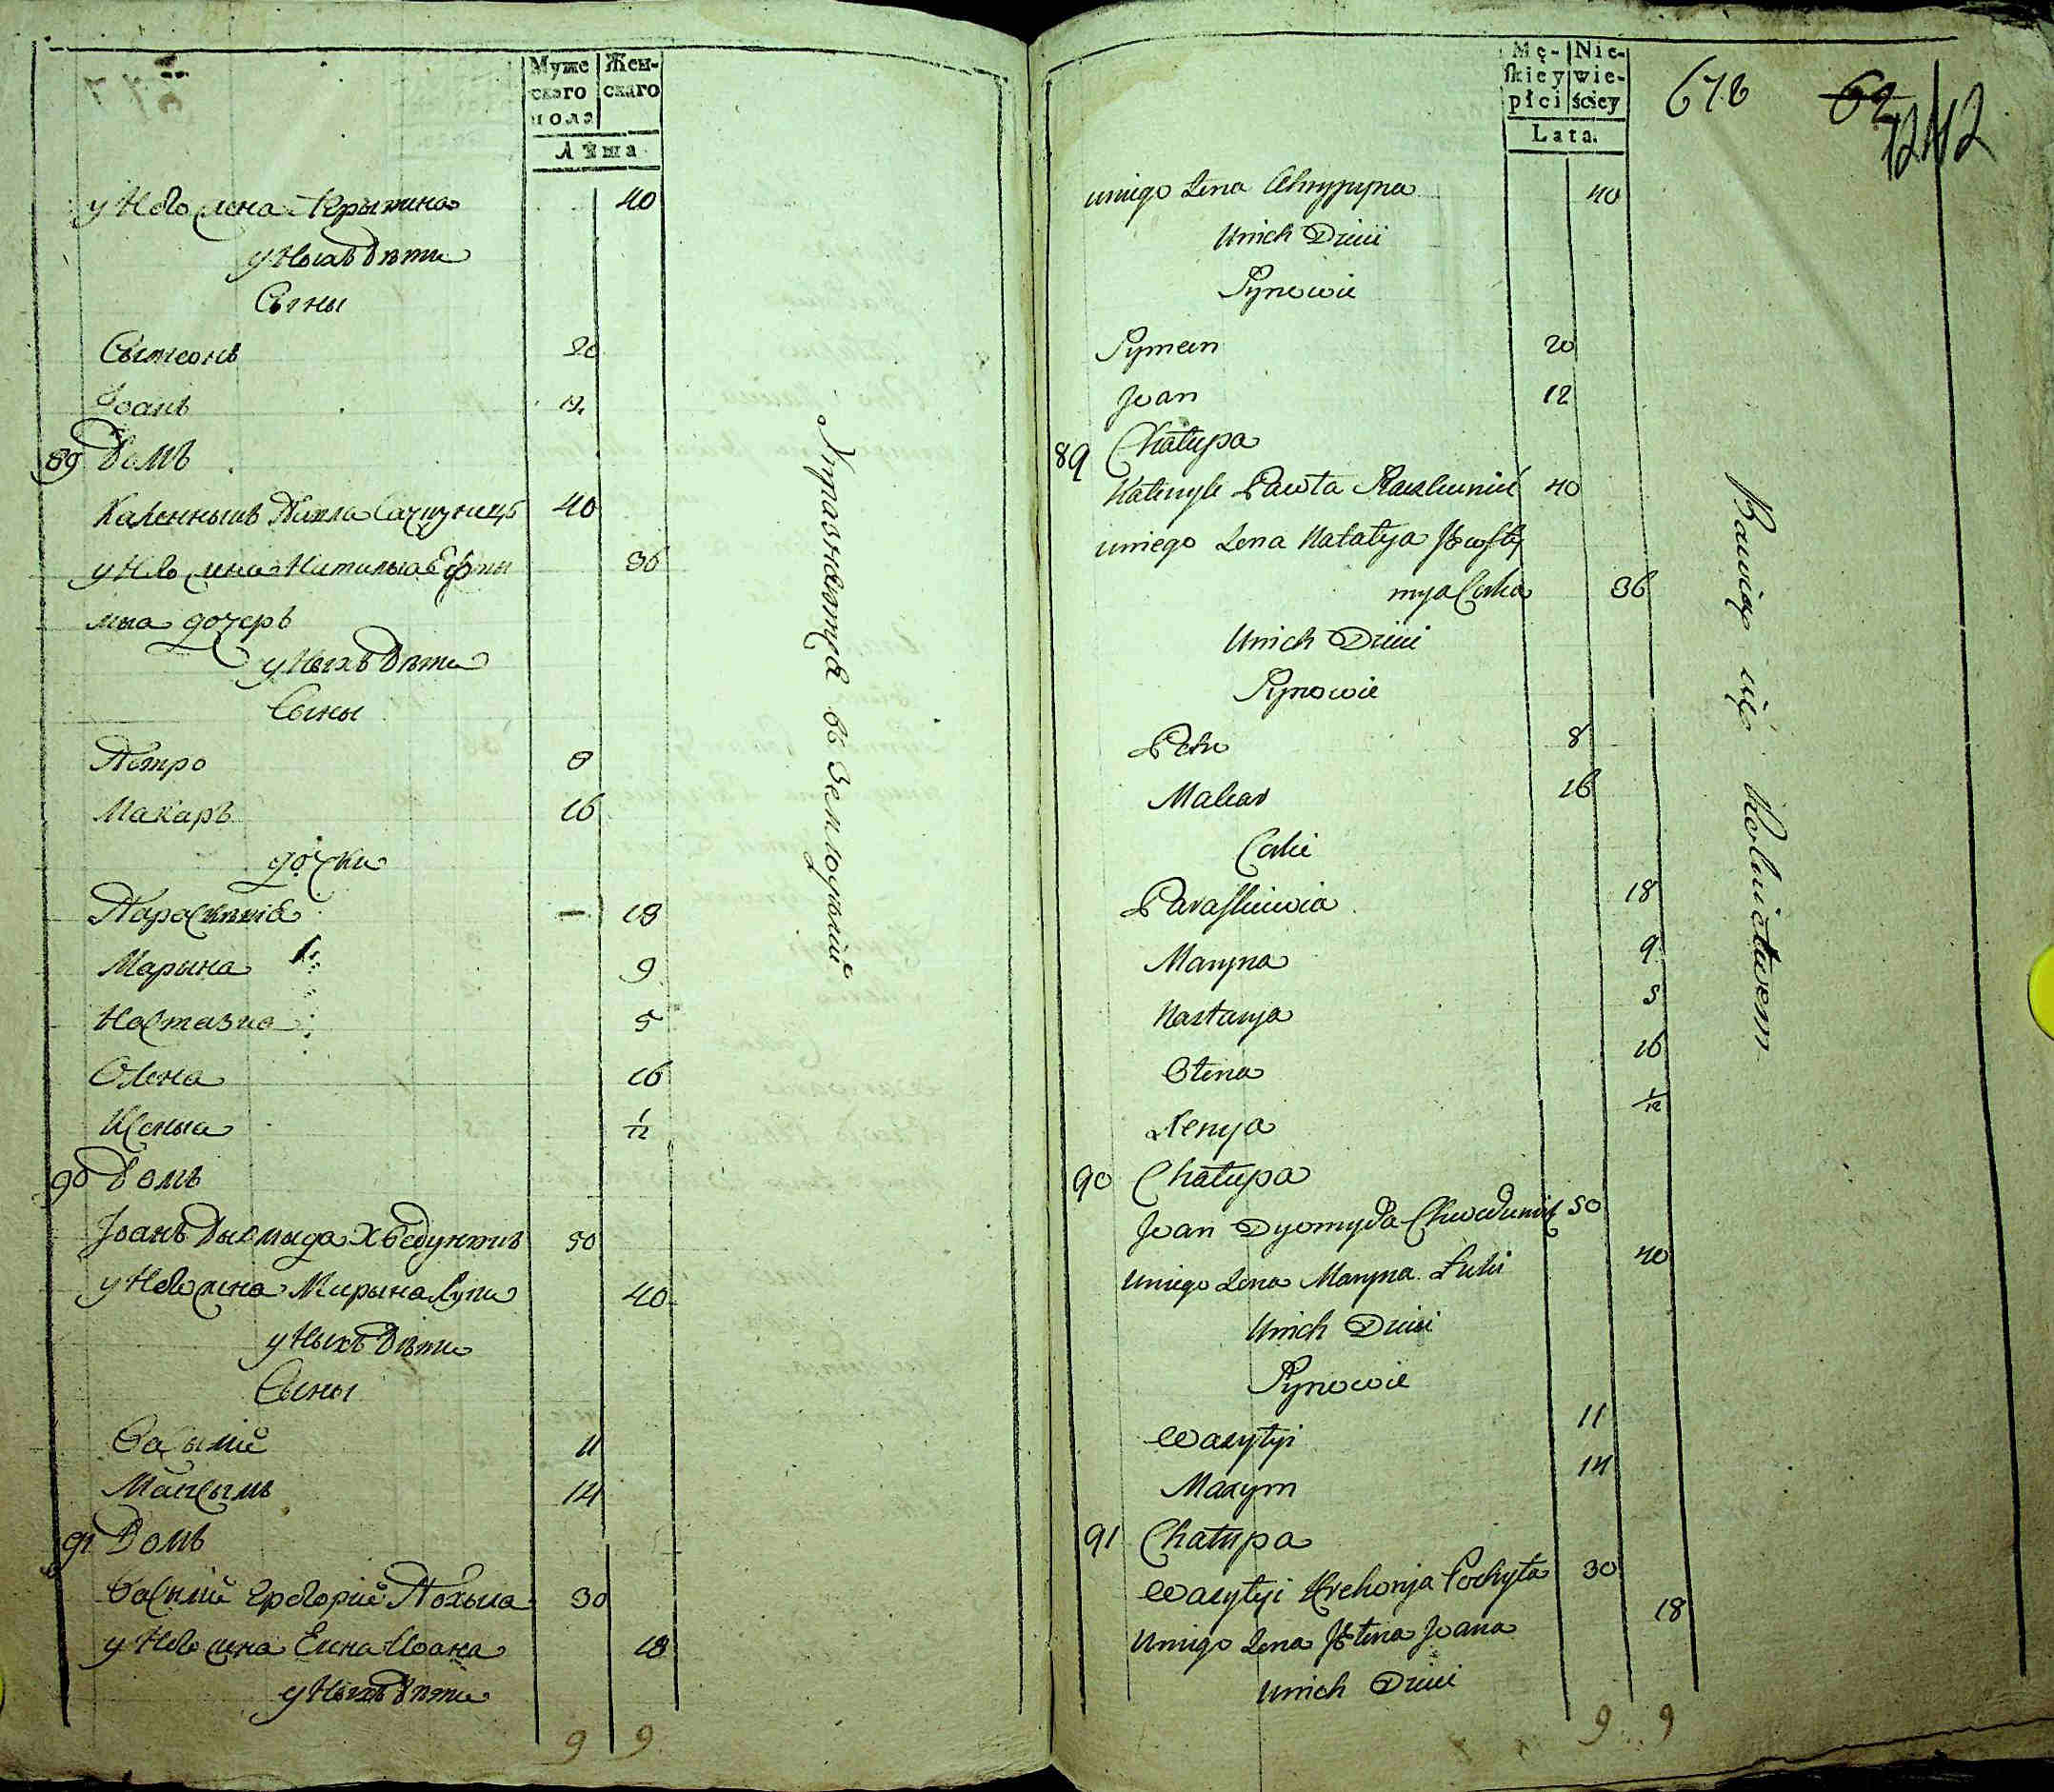 Муже
ского
пола
Жен-
скаго
Лѣта
у Него жена Крыжина 40
у Ныхъ дѣти
Сыны
Сымеонъ 20
Іоанъ 12
89 Домъ
Каленныкъ Павла 40
у Него жена Наталыа Ефты 36
мыа дочеръ
у Ныхъ дѣти
Сыны
Петро 8
Макаръ 16
дочки
Параскевіа 18
Марына 9
Настазиа 5
Олена 16
Ксеныа 1/12
90 Домъ
Іоанъ Дыомыда Хведункивъ 50
у Него жена Марына Луки 40
у Ныхъ дѣти
Сыны
Васылій 11
Максымъ 14
91 Домъ
Васылій Григорій Похыла 30
у Него жена Елена Іоана 18
у Ныхъ дѣти
9 9
Упражняются въ Земледѣліи
Mę-
skiey
płci
Nie-
wie-
ściey
Lata.
678
62
12/12
uniego Żena 40
Unich Dzieci
Synowie
Symeon 20
Joan 12
89 Chałupa
Kalenyk Pawła 40
uniego Żena Natalya Jewfty
mya Corka 36
Unich Dzieci
Synowie
Petro 8
Makar 16
Corki
Paraskiewia 18
Maryna 9
Nastazya 5
Olena 16
Xenya 1/12
90 Chałupa
Joan Dyomyda Chwedunkiw 50
uniego Żena Maryna Łuki 40
Unich Dzieci
Synowie
Wasylyi 11
Maxym 14
91 Chałupa
Wasylyi Hrehorija Pochyła 30
Uniego Żena Jelena Joana 18
Unich Dzieci
9 9
Bawią się Rolnictwem